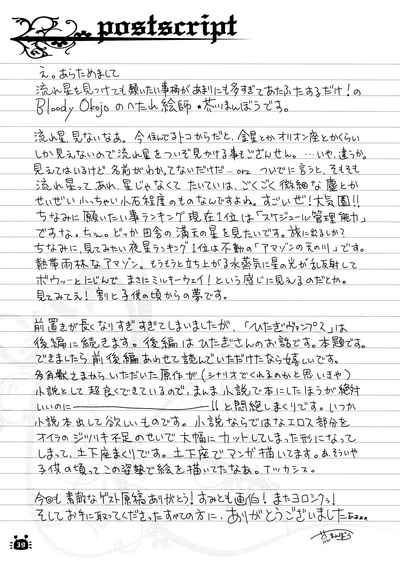 postscript
え。あらためまして
流れ星を見つけても願いたい事柄があまりにも多すぎてあたふたするだけ!の
Bloody Okojo のへたれ絵師・茶いまんぼうです。
流れ星、見ないなあ。今住んでるトコからだと、金星とかオリオン座とかくらい
しか見えないので流れ星をついぞ見かける事もござんせん。…いや、違うか。
見えてはいるけど名前がわかってないだけだ…orz ついでに言うと、そもそも
流れ星って、あれ、星じゃなくてたいていは、ごくごく微細な塵とか
せいぜいちっちゃい小石程度のものなんですよね。すごいぜ!大気圏!!
ちなみに願いたい事ランキング現在1位は「スケジュール管理能力」
ですな。ちぇ。どっか田舎の満天の星を見たいです。旅に出るか?
ちなみに、見てみたい夜星ランキング1位は不動の「アマゾンの天の川」です。
熱帯雨林なアマゾン。もうもうと立ち上がる水蒸気に星の光が乱反射して
ボウッーとにじんで まさにミルキーウェイ!という感じに見えるのだとか。
見てみてえ!割と子供の頃からの夢です。
前置きが長くなりすぎすぎてしまいましたが、「ひたぎヴァンプス」は
後編に続きます。後編はひたぎさんのお話です。本題です。
できましたら前後編あわせて読んでいただけたなら嬉しいです。
さまからいただいた原作が(シナリオでくれるのかと思いきや)
小説として超良くできているので、まんま小説で本にしたほうが絶対
いいのに――――――!!と悶絶しまくりです。いつか
小説本出して欲しいものです。小説ならではなエロス部分を
オイラのジツリキ不足のせいで大幅にカットしてしまった形になって
しまって、土下座まくりです。土下座でマンガ描いてます。あ、そういや
子供の頃ってこの姿勢で絵を描いてたなあ。ナツカシス。
今回も素敵なゲスト原稿ありがとう!すみとも画伯!またヨロシクっ!
そしてお手に取ってくださったすべての方に、ありがとうございました
39